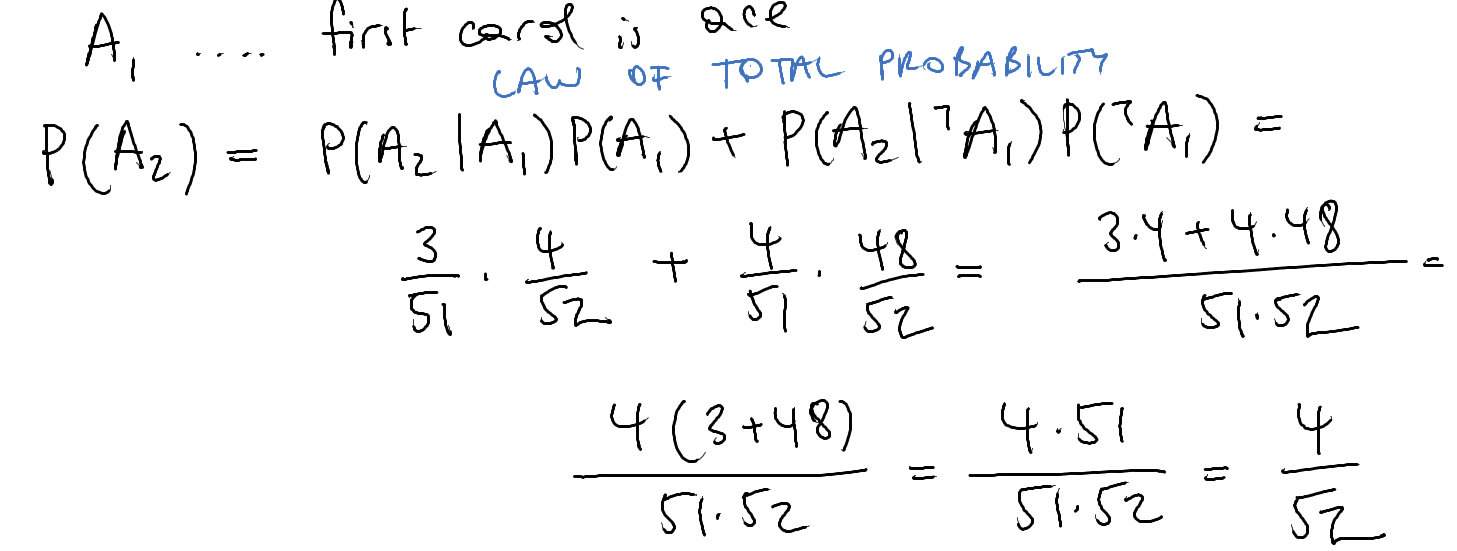 A₁ .... first card is ace
LAW OF TOTAL PROBABILITY
P(A₂) = P(A₂ | A₁) P(A₁) + P(A₂ | ¬A₁) P(¬A₁) =
3/51 · 4/52 + 4/51 · 48/52 = (3·4 + 4·48)/(51·52) =
4(3+48)/(51·52) = 4·51/(51·52) = 4/52